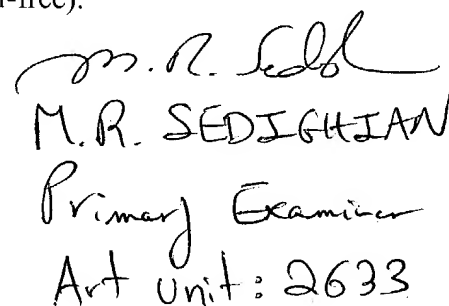 -free).
M. R. Sedigh
M.R. SEDIGHIAN
Primary Examiner
Art Unit: 2633